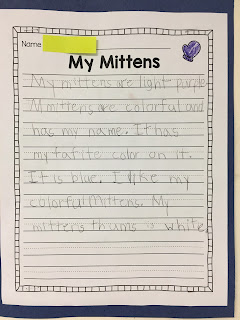 Name
My Mittens
My mittens are light purple
M mittens are colorful and
has my name. It has
my fafite color on it.
It is blue. I like my
colorful mittens. My
mittens thums is white